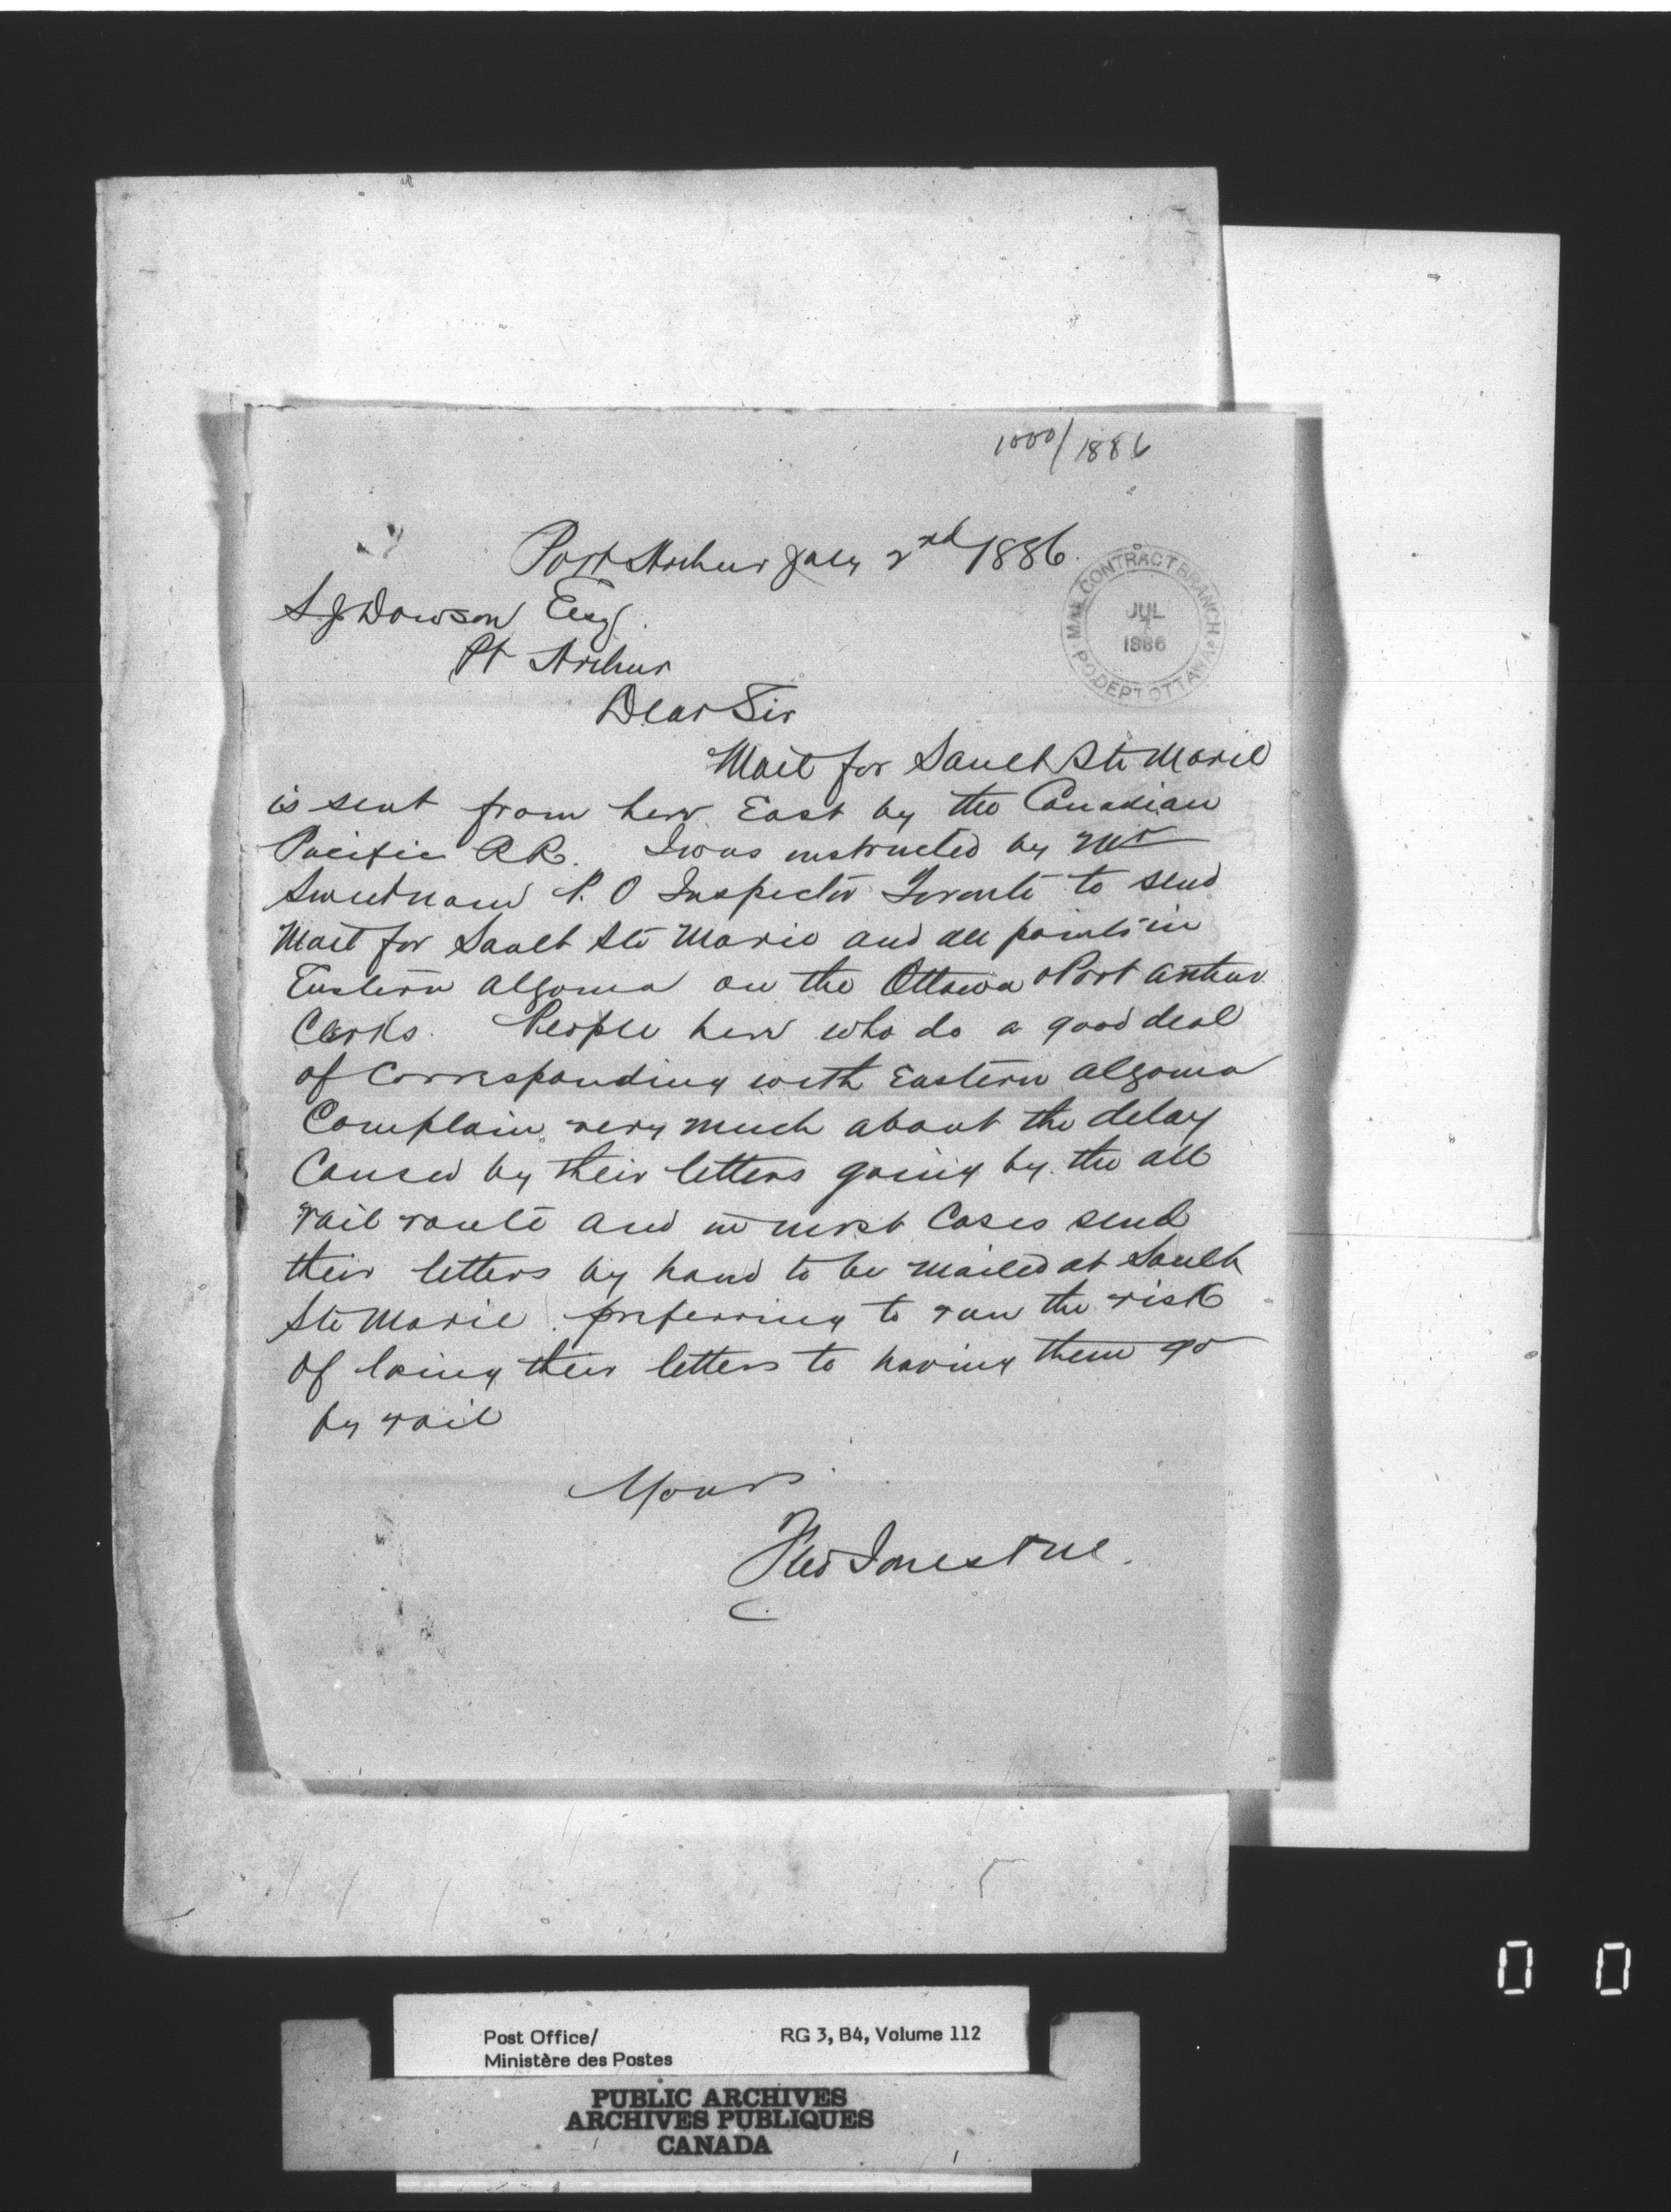 1000/1886
Port Arthur July 2nd 1886.
MAIL CONTRACT BRANCH
JUL
7
1886
P.O. DEPT OTTAWA
S J Dawson Esq.
Pt Arthur
Dear Sir
Mail for Sault Ste Marie
is sent from here East by the Canadian
Pacific R R. I was instructed by Mr
Sweetnam P. O Inspector Toronto to send
Mail for Sault Ste Marie and all points in
Eastern Algoma on the Ottawa & Port Arthur
Clerks. People here who do a good deal
of Corresponding with Eastern Algoma
Complain very much about the delay
Caused by their letters going by the all
rail route and in most Cases send
their letters by hand to be mailed at Sault
Ste Marie preferring to run the risk
of losing their letters to having them go
by rail
Yours
Post Office/
Ministère des Postes
RG 3, B4, Volume 112
PUBLIC ARCHIVES
ARCHIVES PUBLIQUES
CANADA
0 0